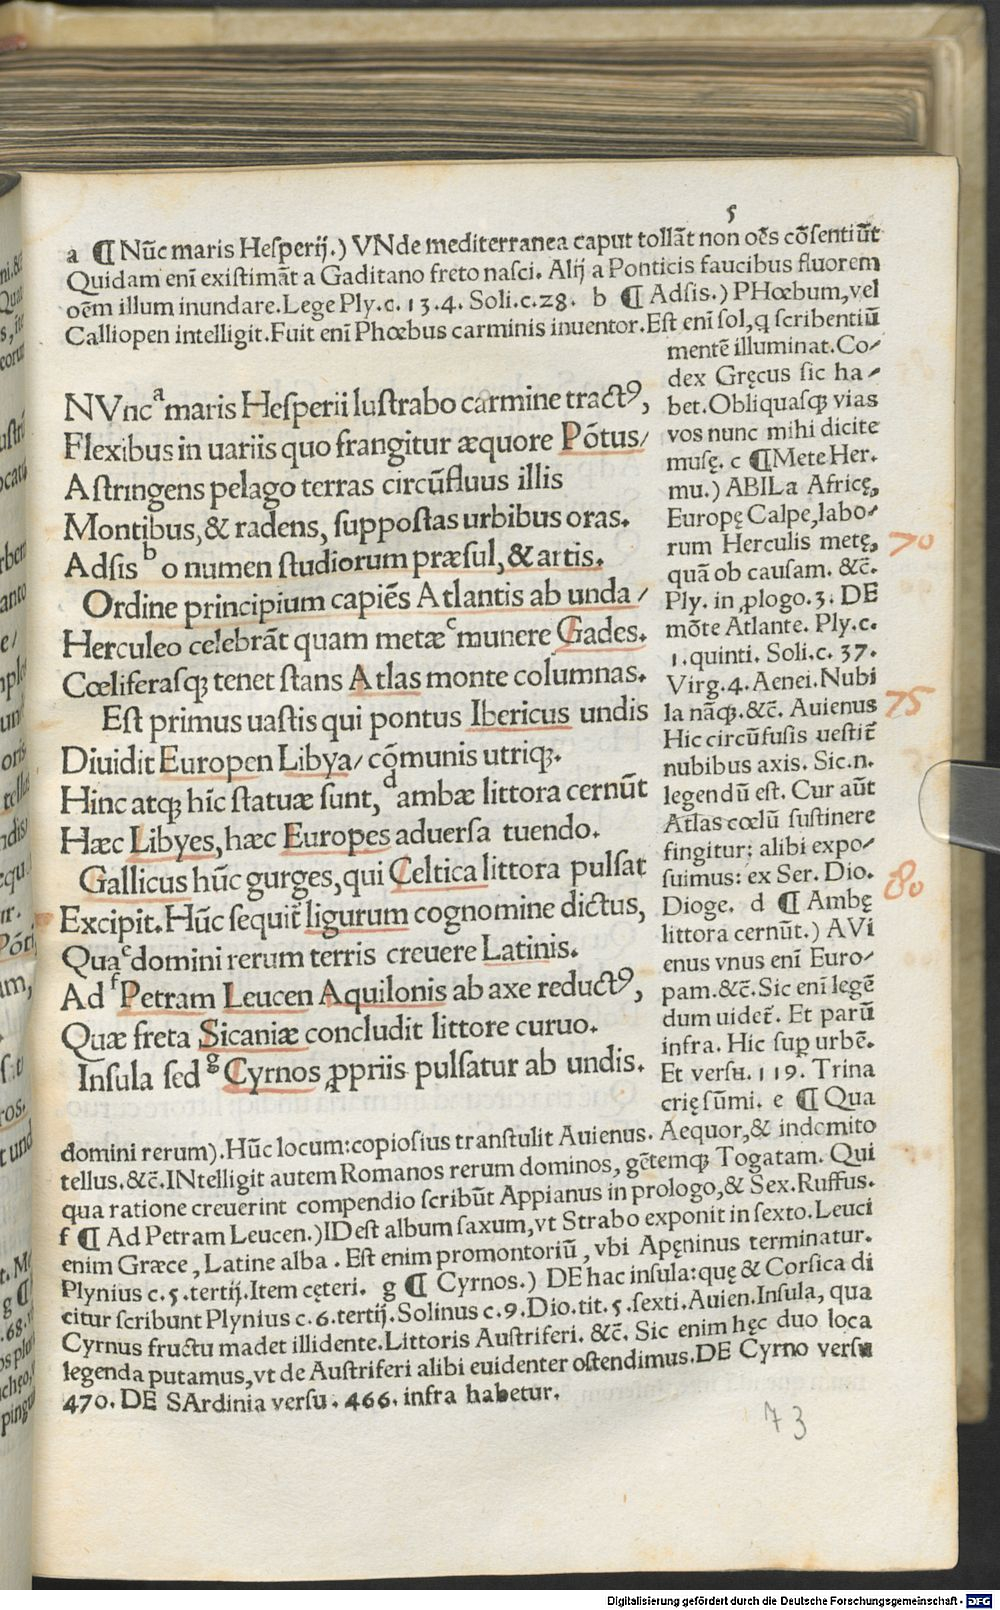 5
a ¶ Nūc maris Hesperij.) VNde mediterranea caput tollāt non oēs cōsentiūt
Quidam enī existimāt a Gaditano freto nasci. Alij a Ponticis faucibus fluorem
oēm illum inundare. Lege Ply.c. 13.4. Soli.c.28. b ¶ Adsis.) PHœbum, vel
Calliopen intelligit. Fuit enī Phœbus carminis inuentor. Est enī sol, q scribentiū
mentē illuminat. Co/
dex Gręcus sic ha/
bet. Obliquasq; vias
vos nunc mihi dicite
musę. c ¶ Mete Her.
mu.) ABILa Africę,
Europę Calpe, labo/
rum Herculis metę,
quā ob causam. &c̄.
Ply. in ꝓlogo.3. DE
mōte Atlante. Ply.c.
1.quinti. Soli.c. 37.
Virg.4. Aenei. Nubi
la nāq;.&c̄. Auienus
Hic circūfusis uestit̄
nubibus axis. Sic.n.
legendū est. Cur aūt
Atlas cœlū sustinere
fingitur: alibi expo/
suimus: ex Ser. Dio.
Dioge. d ¶ Ambę
littora cernūt.) AVi
enus vnus enī Euro/
pam.&c̄. Sic enī legē
dum uidet̄. Et parū
infra. Hic sup urbē.
Et versu. 119. Trina
crię sūmi. e ¶ Qua
NVnc a maris Hesperii lustrabo carmine tractꝰ,
Flexibus in uariis quo frangitur æquore Pōtus/
Astringens pelago terras circūfluus illis
Montibus, & radens, suppostas urbibus oras.
Adsis b o numen studiorum præsul, & artis.
Ordine principium capiēs Atlantis ab unda/
Herculeo celebrāt quam metæ c munere Gades.
Cœliferasq; tenet stans Atlas monte columnas.
Est primus uastis qui pontus Ibericus undis
Diuidit Europen Libya/ cōmunis utriq;.
Hinc atq; hīc statuæ sunt, d ambæ littora cernūt
Hæc Libyes, hæc Europes aduersa tuendo.
Gallicus hūc gurges, qui Celtica littora pulsat
Excipit. Hūc sequit̄ ligurum cognomine dictus,
Qua e domini rerum terris creuere Latinis.
Ad f Petram Leucen Aquilonis ab axe reductꝰ,
Quæ freta Sicaniæ concludit littore curuo.
Insula sed g Cyrnos ꝓppriis pulsatur ab undis.
70
75
80
domini rerum). Hūc locum: copiosius transtulit Auienus. Aequor, & indomito
tellus.&c̄. INtelligit autem Romanos rerum dominos, gētemq; Togatam. Qui
qua ratione creuerint compendio scribūt Appianus in prologo, & Sex. Ruffus.
f ¶ Ad Petram Leucen.) ID est album saxum, vt Strabo exponit in sexto. Leuci
enim Græce, Latine alba. Est enim promontoriū, vbi Apęninus terminatur.
Plynius c.5.tertij. Item cęteri. g ¶ Cyrnos.) DE hac insula: quę & Corsica di
citur scribunt Plynius c.6.tertij. Solinus c.9. Dio.tit.5.sexti. Auien. Insula, qua
Cyrnus fructu madet illidente. Littoris Austriferi. &c̄. Sic enim hęc duo loca
legenda putamus, vt de Austriferi alibi euidenter ostendimus. DE Cyrno versu
470. DE SArdinia versu. 466. infra habetur.
73
Digitalisierung gefördert durch die Deutsche Forschungsgemeinschaft - DFG